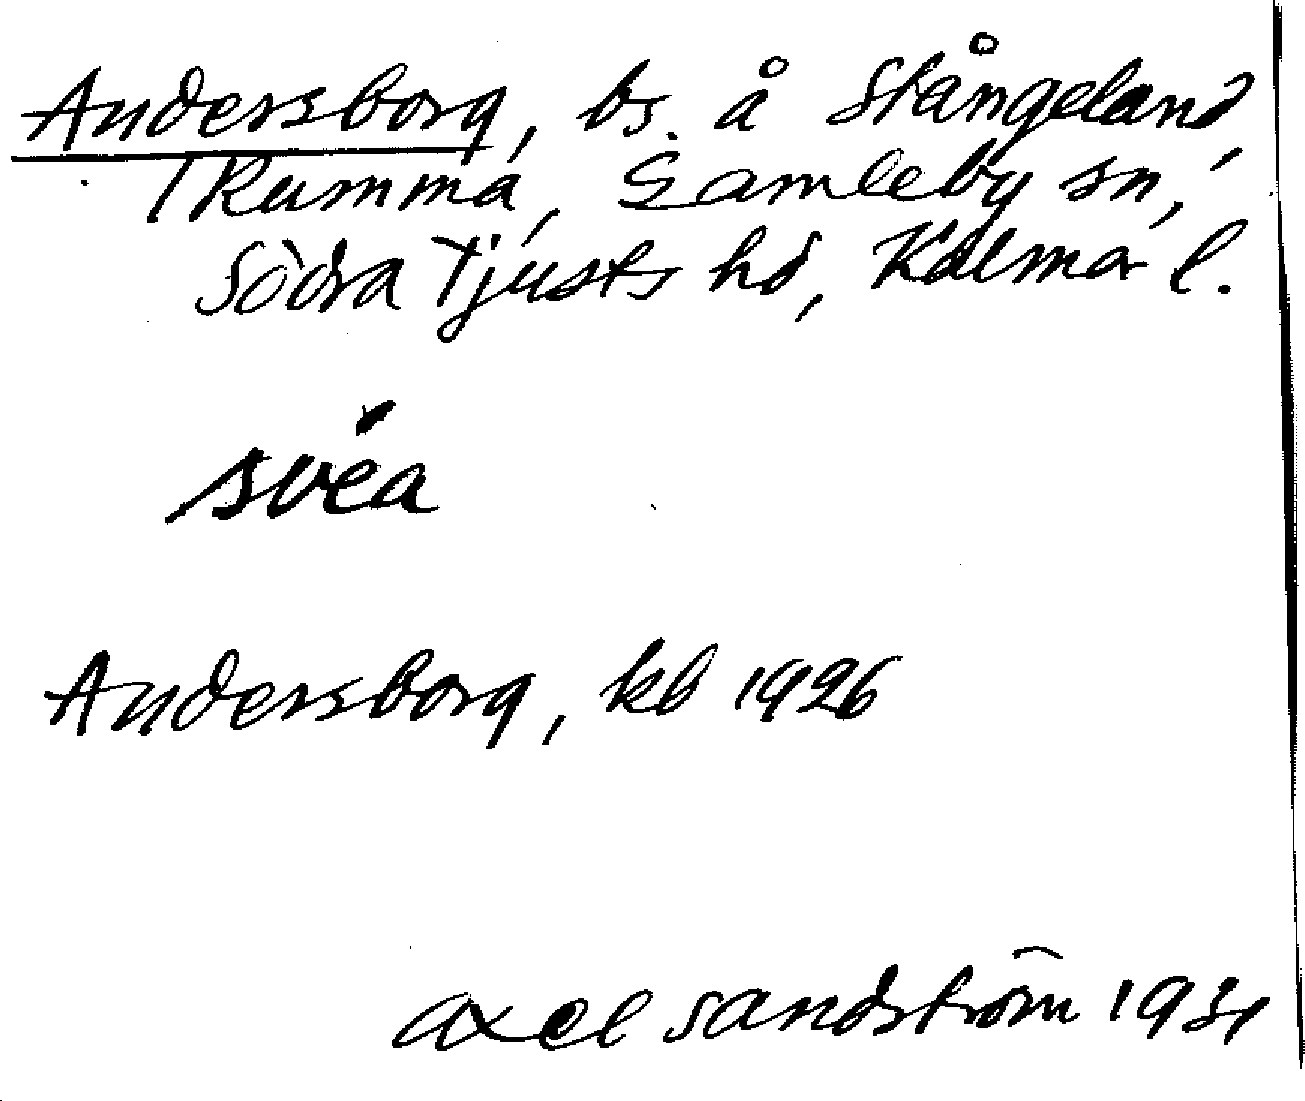 Andersborg, bs. å Stångeland,
Rumma, Gamleby sn,
Södra Tjusts hd, Kalmar l.
svéa
Andersborg, kb 1926
Axel Sandström